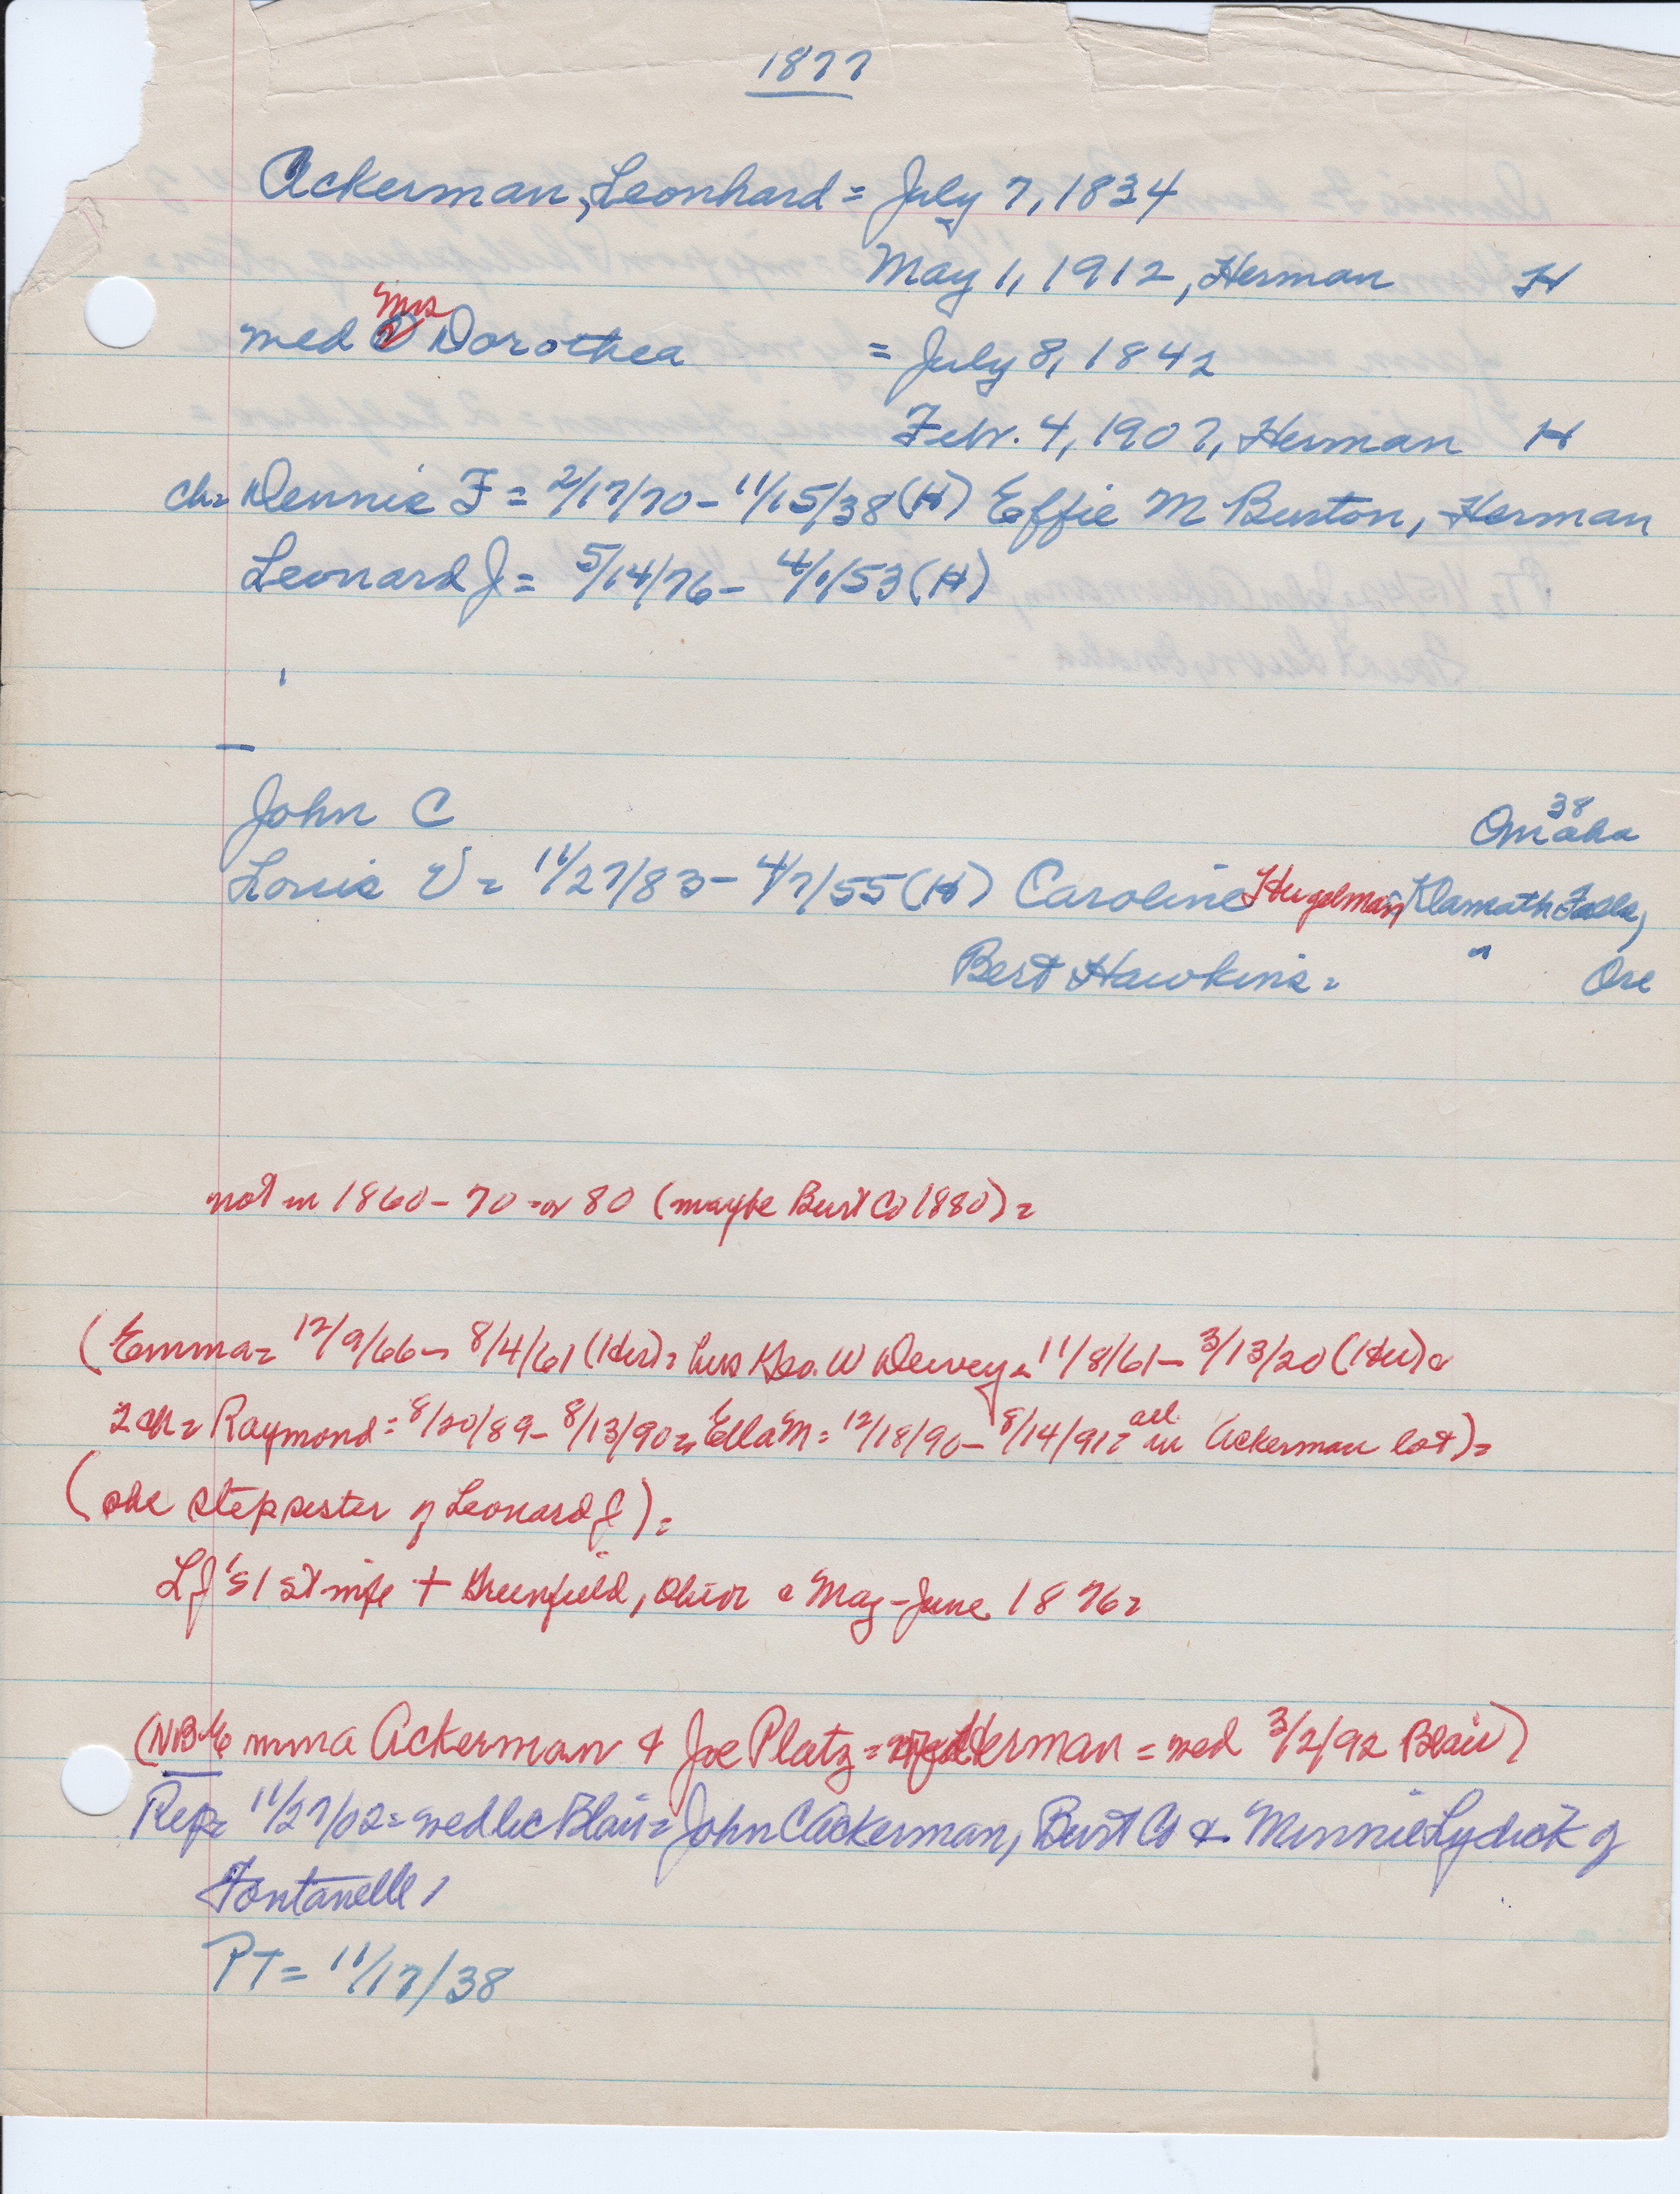 1877
Ackerman, Leonhard = July 7, 1834
May 1, 1912, Herman H
Mrs
wed Dorothea = July 8, 1842
Feb. 4, 1907, Herman H
ch= Dennis F = 2/17/70 - 11/15/38 (H) Effie M Burton, Herman
Leonard J = 5/14/76 - 4/1/53 (H)
John C
38
Omaha
Louis V = 11/27/83 - 4/7/55 (H) Caroline Hugelman, Klamath Falls,
Bert Hawkins = " Ore
not in 1860 - 70 = or 80 (maybe Burt Co 1880) =
(Emma = 12/9/66 - 8/4/61 (Her) = hus Geo. W Dewey = 11/8/61 - 3/13/20 (Her) =
2 ch = Raymond = 8/20/89 - 8/13/90 = Ella M = 12/18/90 - 8/14/91 = all in Ackerman lot) =
(she stepsister of Leonard J) =
LJ's 1st wife + Greenfield, Ohio = May-June 1876 =
(NB = Emma Ackerman & Joe Platz = Herman = wed 3/2/92 Blair)
Rep = 11/27/02 = wed lic Blair = John C Ackerman, Burt Co & Minnie Lydick of
Fontanelle,
PT = 11/17/38